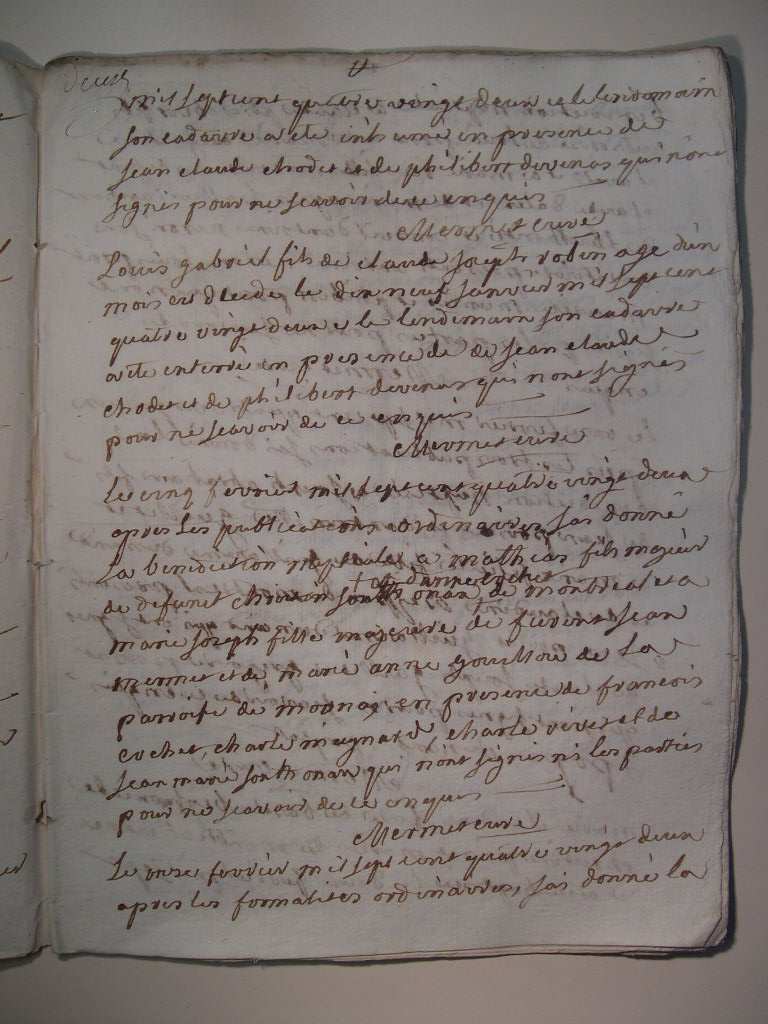 deux
mil sept cent quatre vingt deux et le lendomain
son cadavre a ete inhumé en presence de
jean claude chodet et de philibert devenas qui n'ont
signés pour ne scavoir de ce enquis
Mermet curé
Louis gabriel fils de claude joseph robin age d'un
mois est decede le dix neuf janvier mil sept cent
quatre vingt deux et le lendemain son cadavre
a ete enterré en presence de de jean claude
chodet et de philibert devenas qui nont signés
pour ne scavoir de ce enquis
Mermet curé
Le cinq fevrier mil sept cent quatre vingt deux
apres les publications ordinaires j'ai donné
la benediction nuptiale a mathias fils majeur
de defunt sonthonax de montreal et a
marie joseph fille majeure de jean
mermet et de marie anne de la
parroisse de mornay en presence de francois
cochet, charle meynard, charle et de
jean marie sonthonax qui n'ont signés ni les parties
pour ne scavoir de ce enquis
Mermet curé
Le onze fevrier mil sept cent quatre vingt deux
apres les formalites ordinaires, j'ai donné la